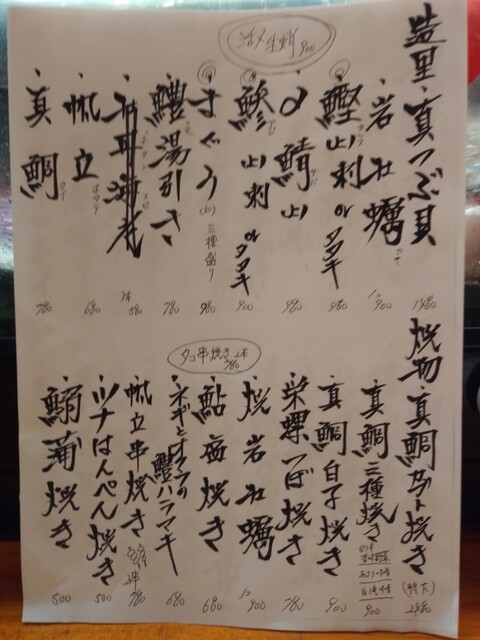 活〆生蛸 900
造里
・真つぶ貝 1480
・岩牡蠣 カキ 1ヶ 900
・鰹 カツオ 山刺 or タタキ 980
〆鯖 サバ 山 980
・鯵 アジ 山刺 or タタキ 900
・まぐろ(山)三種盛り 980
・鱧湯引き 780
・帆立 ホタテ 680
・真鯛 タイ 780
タコ串焼き 2本 780
焼物
・真鯛カブト焼き(特大) 2480
・真鯛三種焼き 900
・真鯛白子焼き 900
・栄螺つぼ焼き 780
・焼岩牡蠣 1ヶ 900
・鮎塩焼き 680
・ネギとオクラの鱧ハラマキ 680
・帆立串焼き 2串 780
・ツナはんぺん焼き 500
・鰯蒲焼き 500